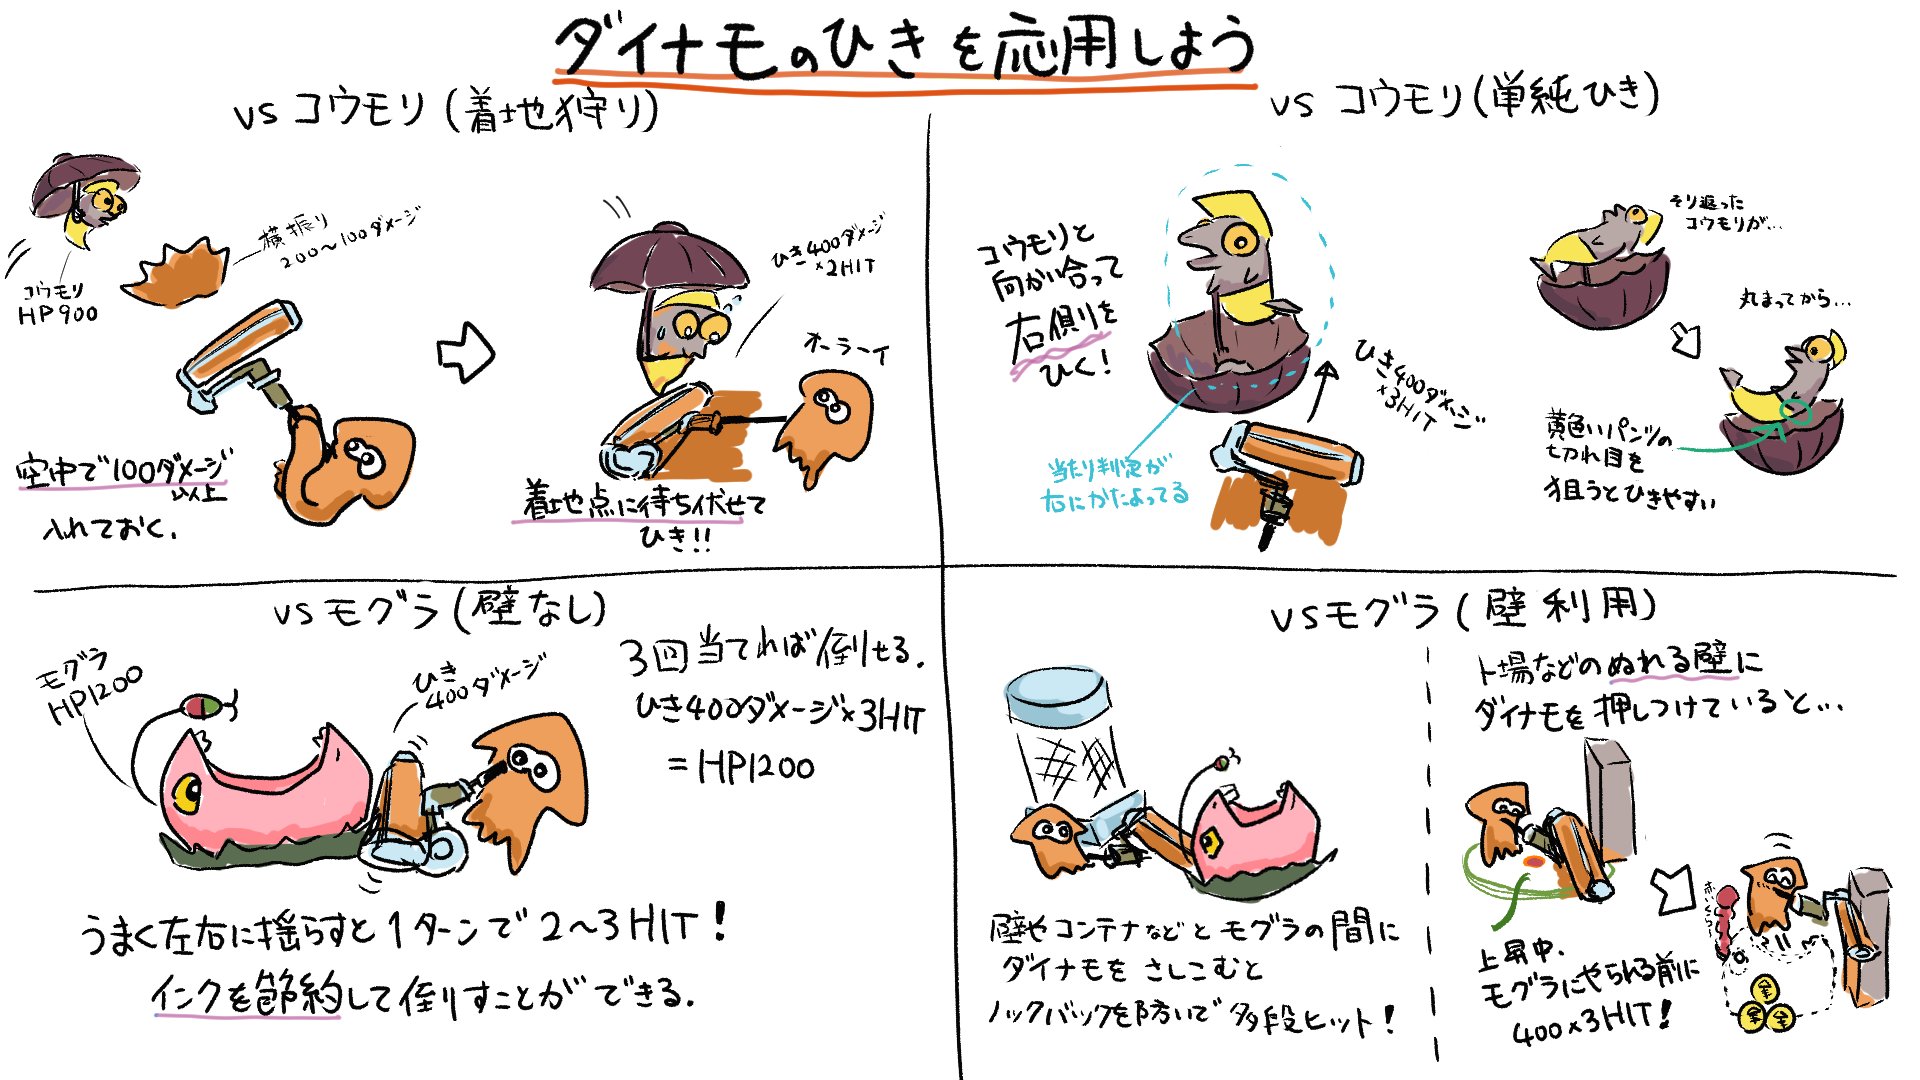 ダイナモのひきを応用しよう
vs コウモリ(着地狩り)
コウモリ
HP900
横振り
200〜100ダメージ
空中で100ダメージ
以上
入れておく.
ひき400ダメージ
×2HIT
オーラーイ
着地点に待ち伏せて
ひき!!
vs コウモリ(単純ひき)
コウモリと
向かい合って
右側を
ひく!
当たり判定が
右にかたよってる
ひき400ダメージ
×3HIT
そり返った
コウモリが...
丸まってから...
黄色いパンツの
切れ目を
狙うとひきやすい
vs モグラ(壁なし)
モグラ
HP1200
ひき
400ダメージ
3回当てれば倒せる.
ひき400ダメージ×3HIT
=HP1200
うまく左右に揺らすと1ターンで2〜3HIT!
インクを節約して倒すことができる.
vsモグラ(壁利用)
壁やコンテナなどとモグラの間に
ダイナモをさしこむと
ノックバックを防いで多段ヒット!
ト場などのぬれる壁に
ダイナモを押しつけていると...
上昇中.
モグラにやられる前に
400×3HIT!